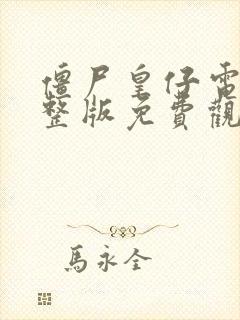 僵尸皇仔電
整版免費觀
馬永全